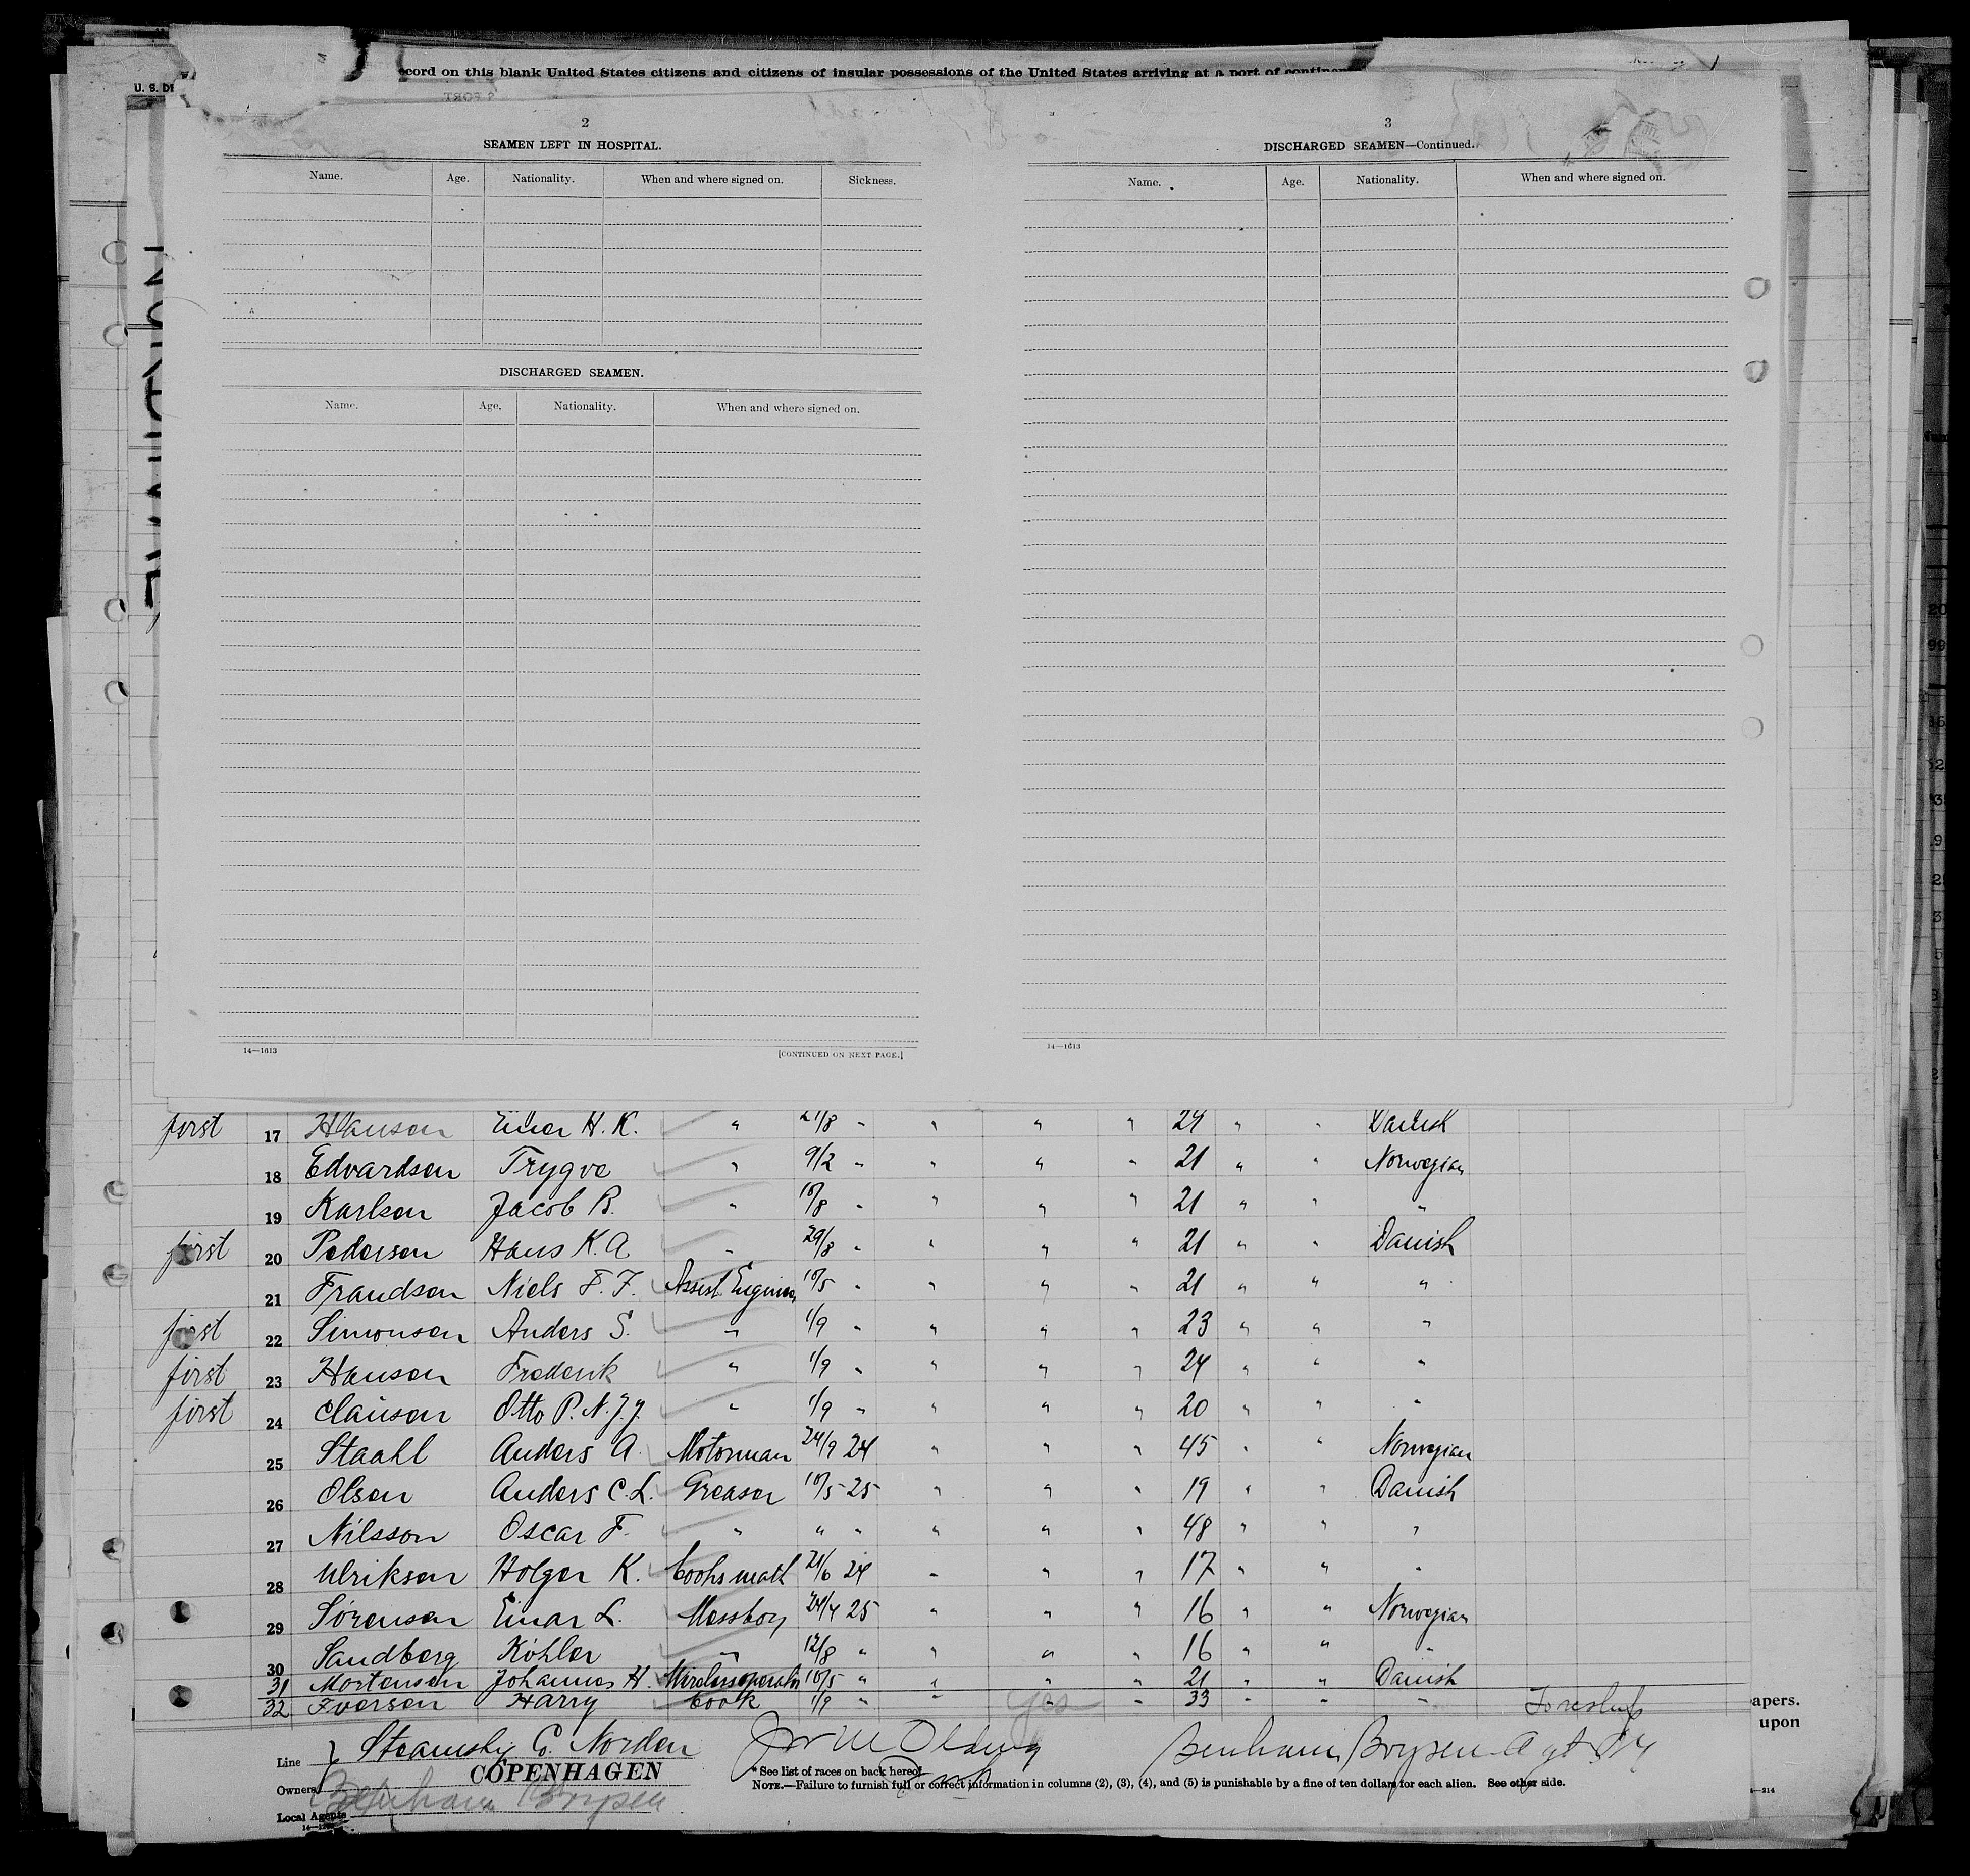 ecord on this blank United States citizens and citizens of insular possessions of the United States arriving at a port of
U. S. DE
2
SEAMEN LEFT IN HOSPITAL.
Name. Age. Nationality. When and where signed on. Sickness.
DISCHARGED SEAMEN.
Name. Age. Nationality. When and where signed on.
14—1613 [CONTINUED ON NEXT PAGE.]
3
DISCHARGED SEAMEN—Continued.
Name. Age. Nationality. When and where signed on.
14—1613
first 17 Hansen Einer H. K. " 21/8 " " " " 24 " " Danish
18 Edvardsen Trygve " 9/2 " " " " 21 " " Norwegian
19 Karlsen Jacob B. " 10/8 " " " " 21 " " "
first 20 Pedersen Hans K. A " 29/8 " " " " 21 " " Danish
21 Frandsen Niels F. F. Assist. Engineer 10/5 " " " " 21 " " "
first 22 Simonsen Anders S. " 1/9 " " " " 23 " " "
first 23 Hansen Frederik " 1/9 " " " " 24 " " "
first 24 Clausen Otto P. N. J. J. " 1/9 " " " " 20 " " "
25 Staahl Anders A. Motorman 24/9 24 " " " 45 " " Norwegian
26 Olsen Anders C. L. Greaser 10/5 25 " " " 19 " " Danish
27 Nilsson Oscar F. " " " " " " 48 " " "
28 Ulriksen Holger K. Cooks math 21/6 24 " " " 17 " " "
29 Sørensen Einar L. Messboy 24/4 25 " " " 16 " " Norwegian
30 Sandberg Köhler " 12/8 " " " " 16 " " "
31 Mortensen Johannes H. Wirelessoperator 10/5 " " " " 21 " " Danish
32 Iversen Harry Cook 1/9 " " yes " 33 " " "
apers.
upon
Line } Steamship Co. Norden
COPENHAGEN
Owners
Benham Boysen
Local Agents
Benham Boysen Agt NY
* See list of races on back hereof.
NOTE.—Failure to furnish full or correct information in columns (2), (3), (4), and (5) is punishable by a fine of ten dollars for each alien. See other side.